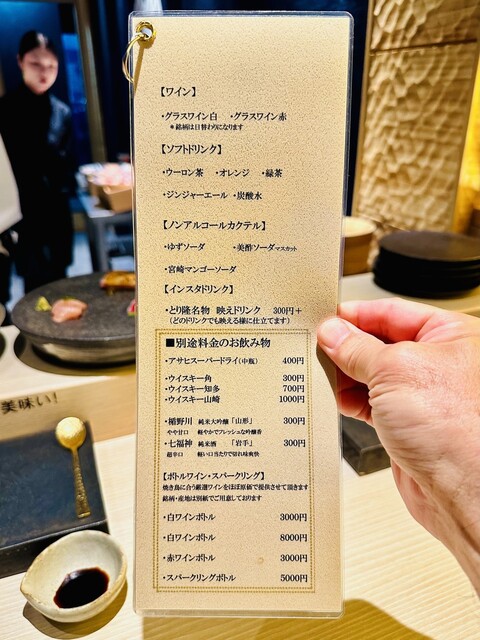 【ワイン】
・グラスワイン白 ・グラスワイン赤
＊銘柄は日替わりになります
【ソフトドリンク】
・ウーロン茶 ・オレンジ ・緑茶
・ジンジャーエール ・炭酸水
【ノンアルコールカクテル】
・ゆずソーダ ・美酢ソーダマスカット
・宮崎マンゴーソーダ
【インスタドリンク】
・とり隆名物 映えドリンク 300円＋
（どのドリンクでも映える様に仕立てます）
■別途料金のお飲み物
・アサヒスーパードライ（中瓶） 400円
・ウイスキー角 300円
・ウイスキー知多 700円
・ウイスキー山崎 1000円
・楯野川 純米大吟醸「山形」 300円
やや甘口 軽やかでフレッシュな吟醸香
・七福神 純米酒 「岩手」 300円
超辛口 軽い口当たりで切れ味爽快
【ボトルワイン・スパークリング】
焼き鳥に合う厳選ワインをほぼ原価で提供させて頂きます
銘柄・産地は別紙でご用意しております
・白ワインボトル 3000円
・白ワインボトル 8000円
・赤ワインボトル 3000円
・スパークリングボトル 5000円
美味い!